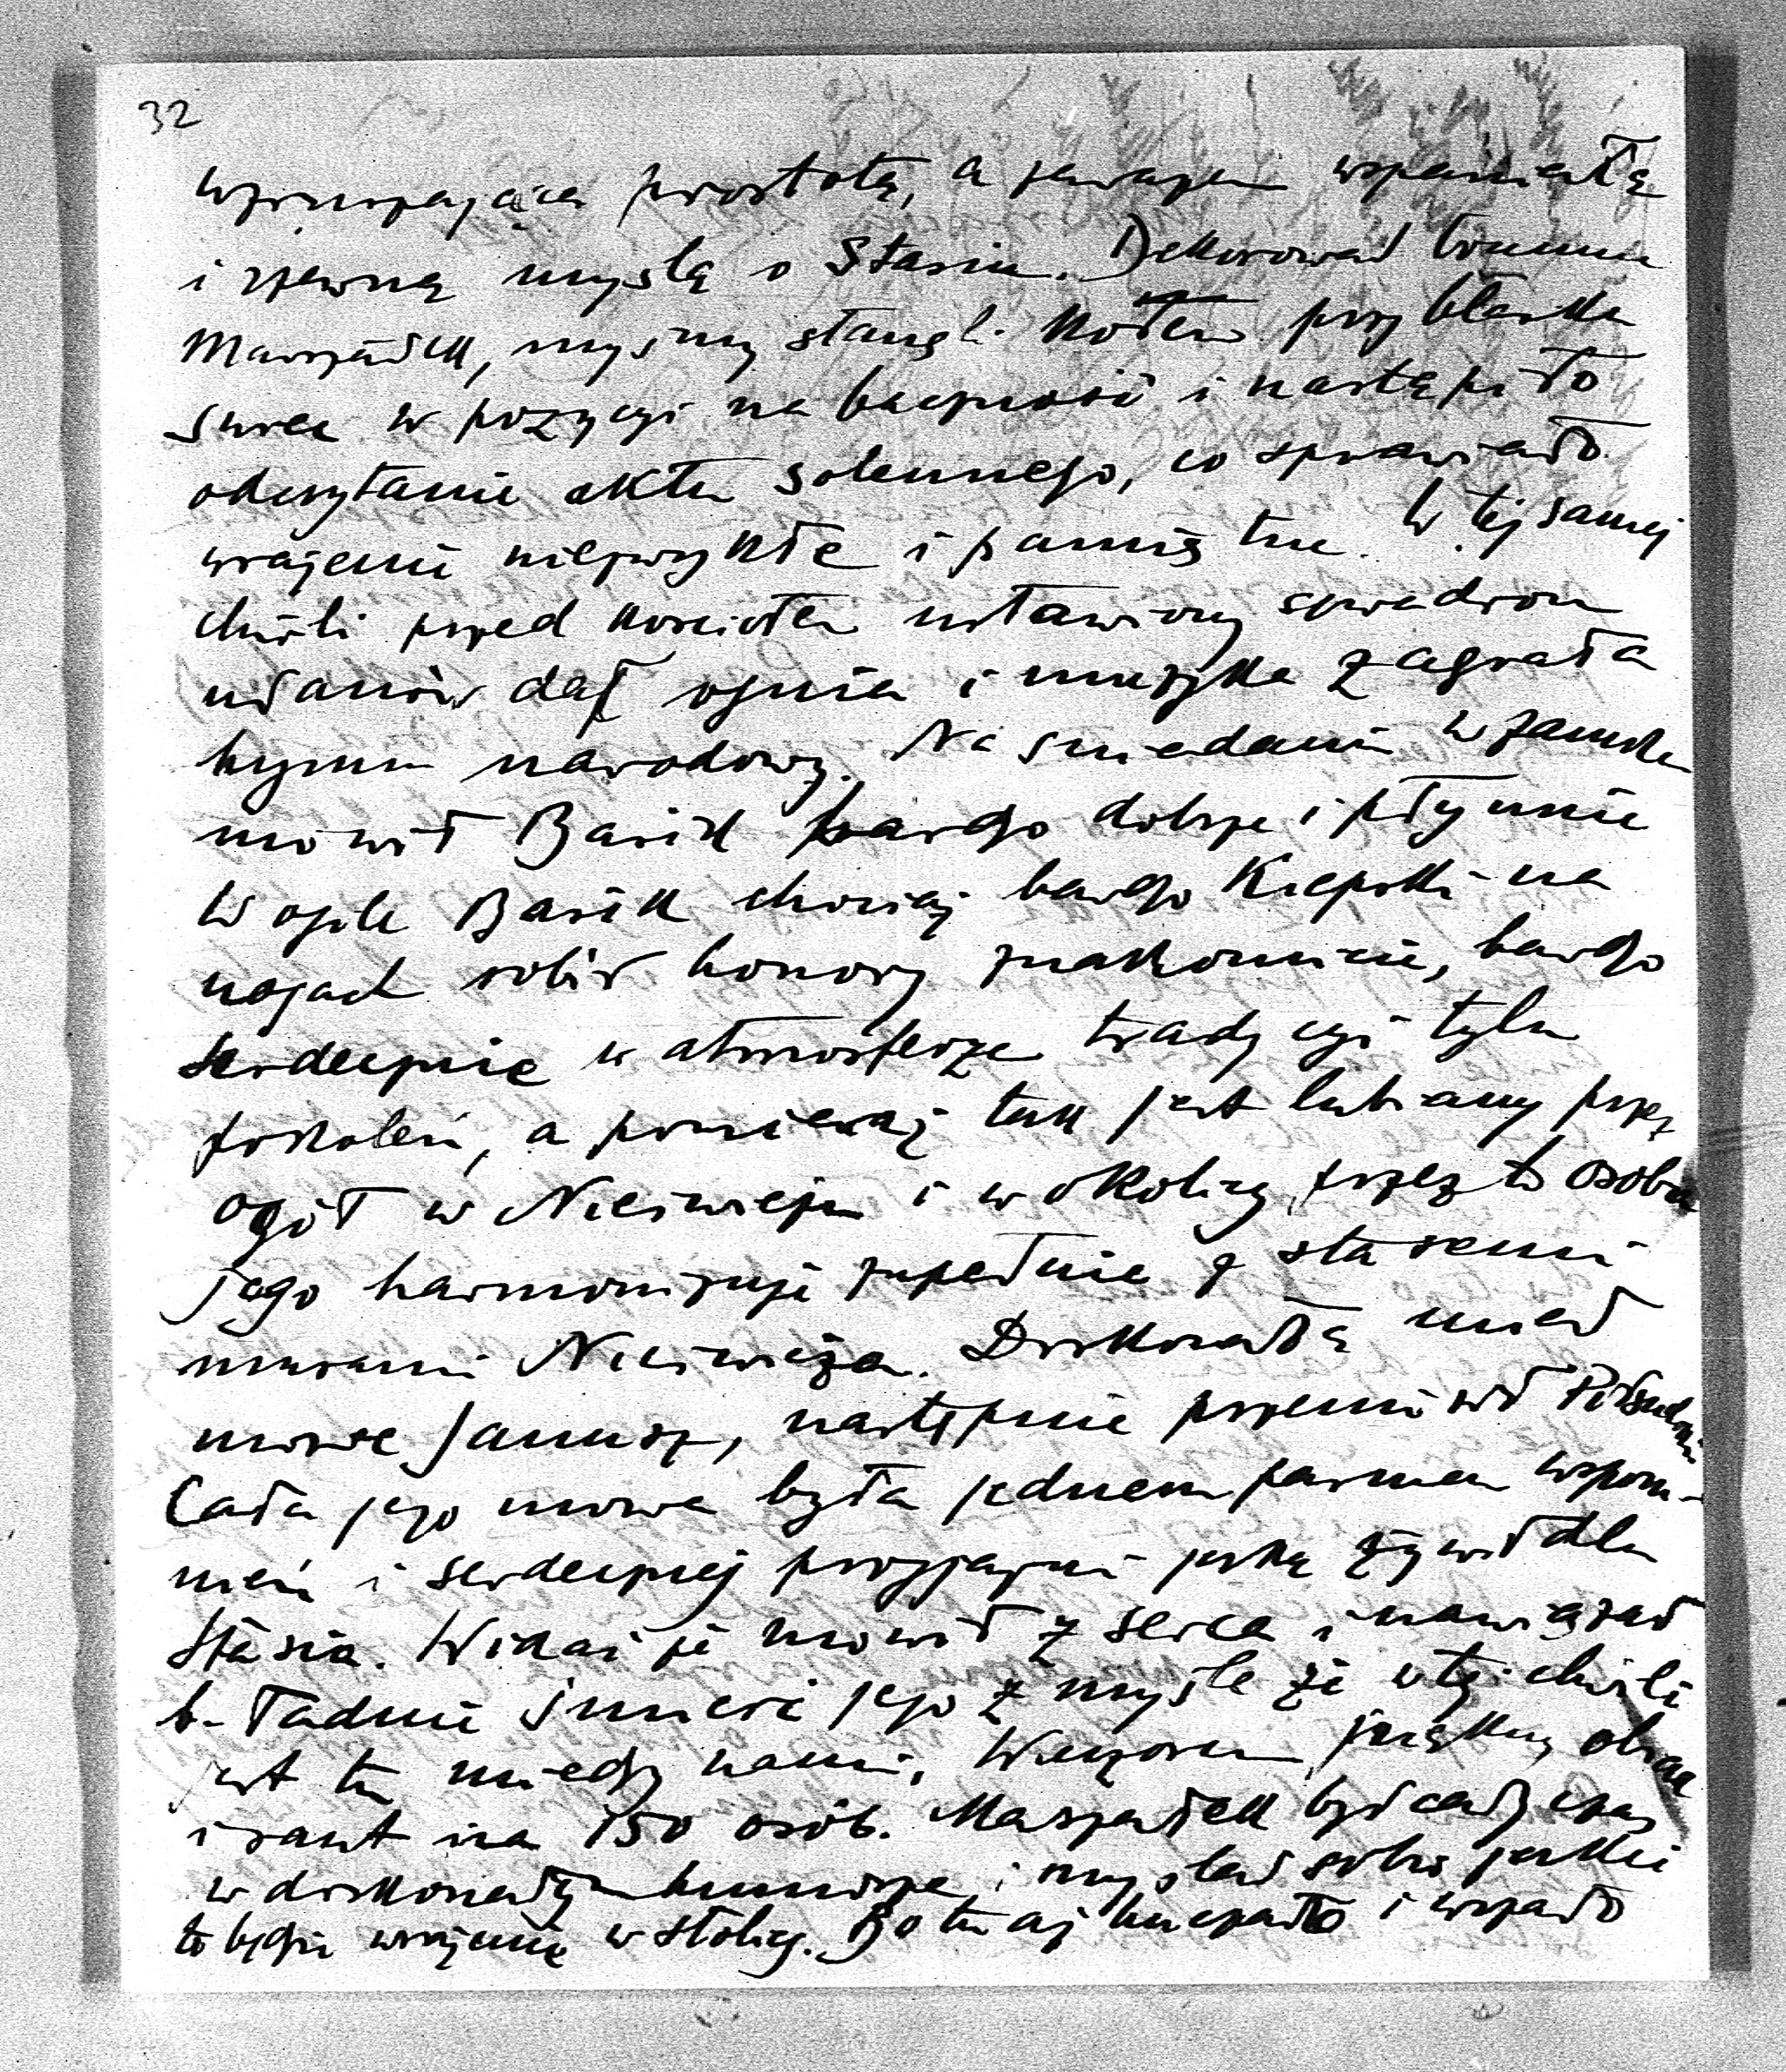 32
wzruszająca prostotą, a zarazem wspaniałą
i rzewną myślą o Stasiu. Dekorował trumnę
Marszałek, myśmy stanęli kołem przy blasku
świec w pozycyi na baczność i nastąpiło
odczytanie aktu solennego, co sprawiało
wrażenie niezwykłe i pamiętne. W tej samej
chwili przed kościołem ustawiony szwadron
ułanów dał ognia i muzyka zagrała
hymn narodowy. Na śniadaniu w zamku
mówił Basik bardzo dobrze i płynnie
W ogóle Basik chociaż bardzo kiepski na
nogach robił honory znakomicie, bardzo
serdecznie w atmosferze tradycyi tylu
pokoleń, a ponieważ tak jest lubiany przez
ogół w Nieświeżu i w okolicy przez to osoba
jego harmonizuje zupełnie z staremi
murami Nieświeża. Doskonałą miał
mowę Janusz, następnie przemówił Piłsudski
Cała jego mowa była jednem pasmem wspom-
nień i serdecznej przyjaźni jaką żywił dla
Stasia. Widać że mówił z serca i nawiązał
b. ładnie śmierć jego z myślą że w tej chwili
jest tu między nami. Wieczorem piękny obiad
i raut na 150 osób. Marszałek był cały czas
w doskonałym humorze i myślał sobie jakie
to będzie wrażenie w stolicy. Bo tu aj huczało i wrzało